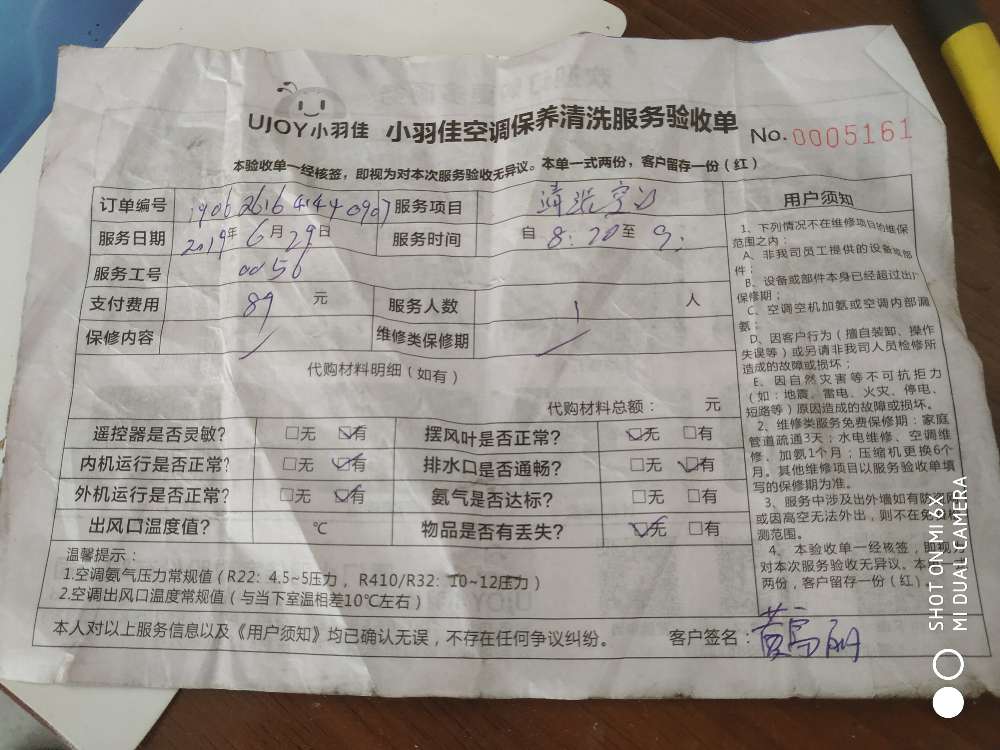 UJOY小羽佳 小羽佳空调保养清洗服务验收单 No.0005161
本验收单一经核签，即视为对本次服务验收无异议。本单一式两份，客户留存一份（红）
订单编号 服务项目 清洗空
服务日期 2019年6月29日 服务时间 自 8:20至 9:
服务工号 0056
支付费用 89 元 服务人数 1 人
保修内容 维修类保修期
代购材料明细（如有）
代购材料总额： 元
遥控器是否灵敏? □无 ☑有 摆风叶是否正常? ☑无 □有
内机运行是否正常? □无 ☑有 排水口是否通畅? □无 ☑有
外机运行是否正常? □无 ☑有 氨气是否达标? □无 □有
出风口温度值? ℃ 物品是否有丢失? ☑无 □有
温馨提示：
1.空调氨气压力常规值（R22: 4.5~5压力，R410/R32: 10~12压力）
2.空调出风口温度常规值（与当下室温相差10℃左右）
本人对以上服务信息以及《用户须知》均已确认无误，不存在任何争议纠纷。 客户签名：
用户须知
1、下列情况不在维修项目的维保
范围之内：
A、非我司员工提供的设备或部
件；
B、设备或部件本身已经超过出厂
保修期；
C、空调空机加氨或空调内部漏
氨；
D、因客户行为（擅自装卸、操作
失误等）或另请非我司人员检修所
造成的故障或损坏；
E、因自然灾害等不可抗拒力
（如：地震、雷电、火灾、停电、
短路等）原因造成的故障或损坏。
2、维修类服务免费保修期：家庭
管道疏通3天；水电维修、空调维
修、加氨1个月；压缩机更换6个
月。其他维修项目以服务验收单填
写的保修期为准。
3、服务中涉及出外墙如有防
或因高空无法外出，则不在免
测范围。
4、本验收单一经核签，即视
对本次服务验收无异议。本
两份，客户留存一份（红）。
SHOT ON MI 6X
MI DUAL CAMERA